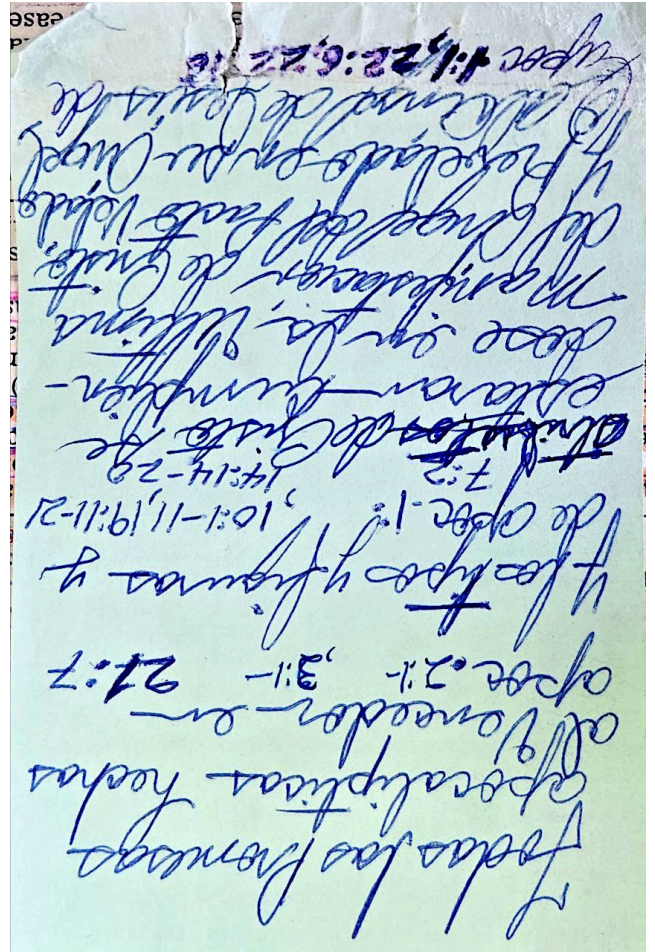 Todas las Promesas
apocalipticas hechas
al Vencedor en
apoc. 2:1- , 3:1- 21:7
Y los tipos y figuras y
de apoc. 1: , 10:1-11, 19:11-21
7:2 14:14-20
de Cristo se
estaran cumplien-
dose en la Ultima
Manifestacion de Cristo,
del Angel del Pacto Velado
y Revelado en su Angel,
de Jesus de
Apoc 1:1, 22:6, 22:16